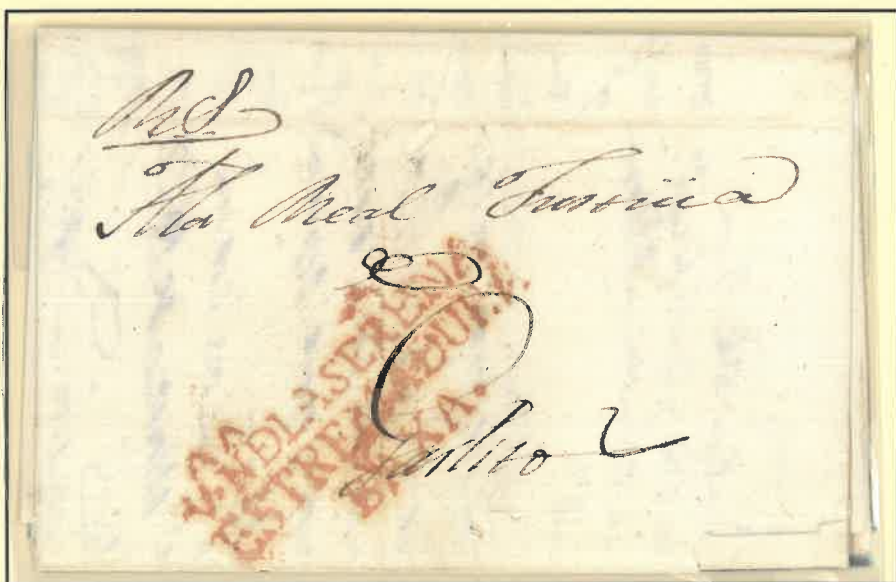 R.S.
A la Real Justicia
de
VVA. DLASERENA
ESTREMADURA
BAXA.